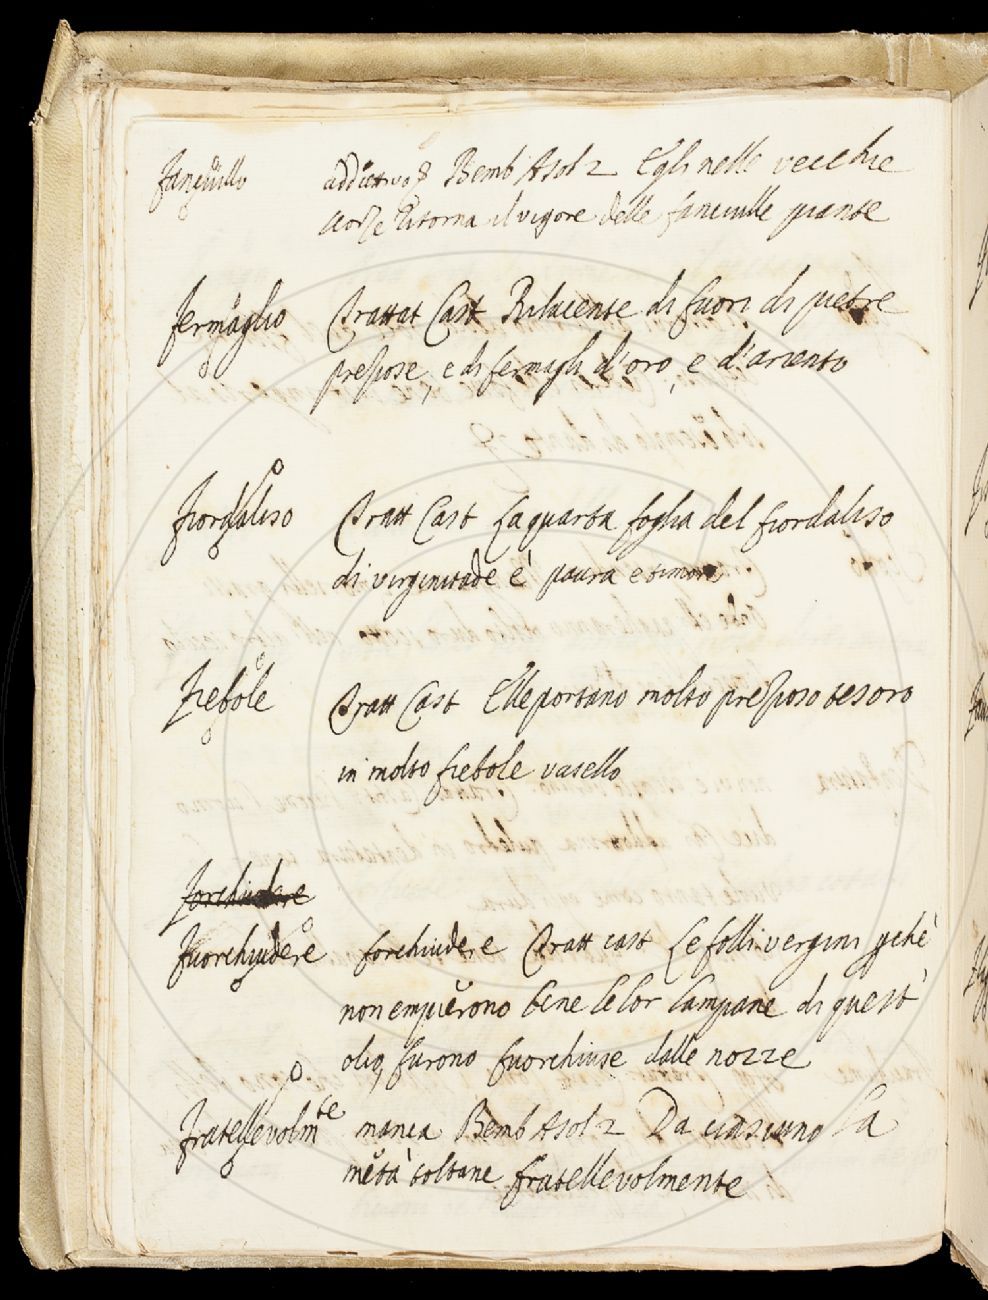 fanciullo addiettivo Bemb Asol 2 Egli nelle vecchie
scorze ritorna il vigore delle fanciulle piante
fermaglio Trattat Cast Rilucente di fuori di pietre
preziose, e di fermagli d'oro, e d'ariento
fiordaliso Tratt Cast La quarta foglia del fiordaliso
di virginitade è paura e timore
fiebole Tratt Cast Elle portano molto prezioso tesoro
in molto fiebole vasello
forchiudere
fuorchiudere forchiudere Tratt cast Le folli vergini pchè
non empierono bene le lor lampane di quest'
olio, furono fuorchiuse dalle nozze
fratellevolmte manca Bemb Asol 2 Da ciascuno la
metà toltane fratellevolmente